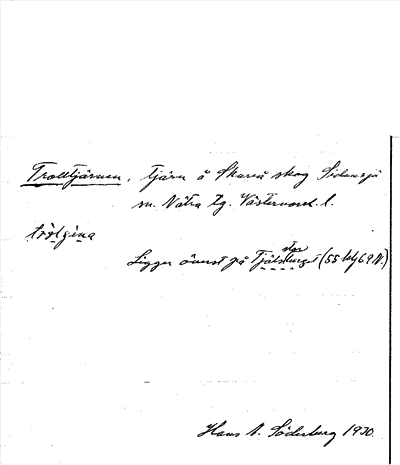 Trolltjärnen, tjärn å Skureå skog Sidensjö
sn. Nätra tg. Västernorrl. l.
tròlgina
Ligger överst på Tjälsberget (55 bty 69 N.)
stor
Hans A. Söderberg 1930.